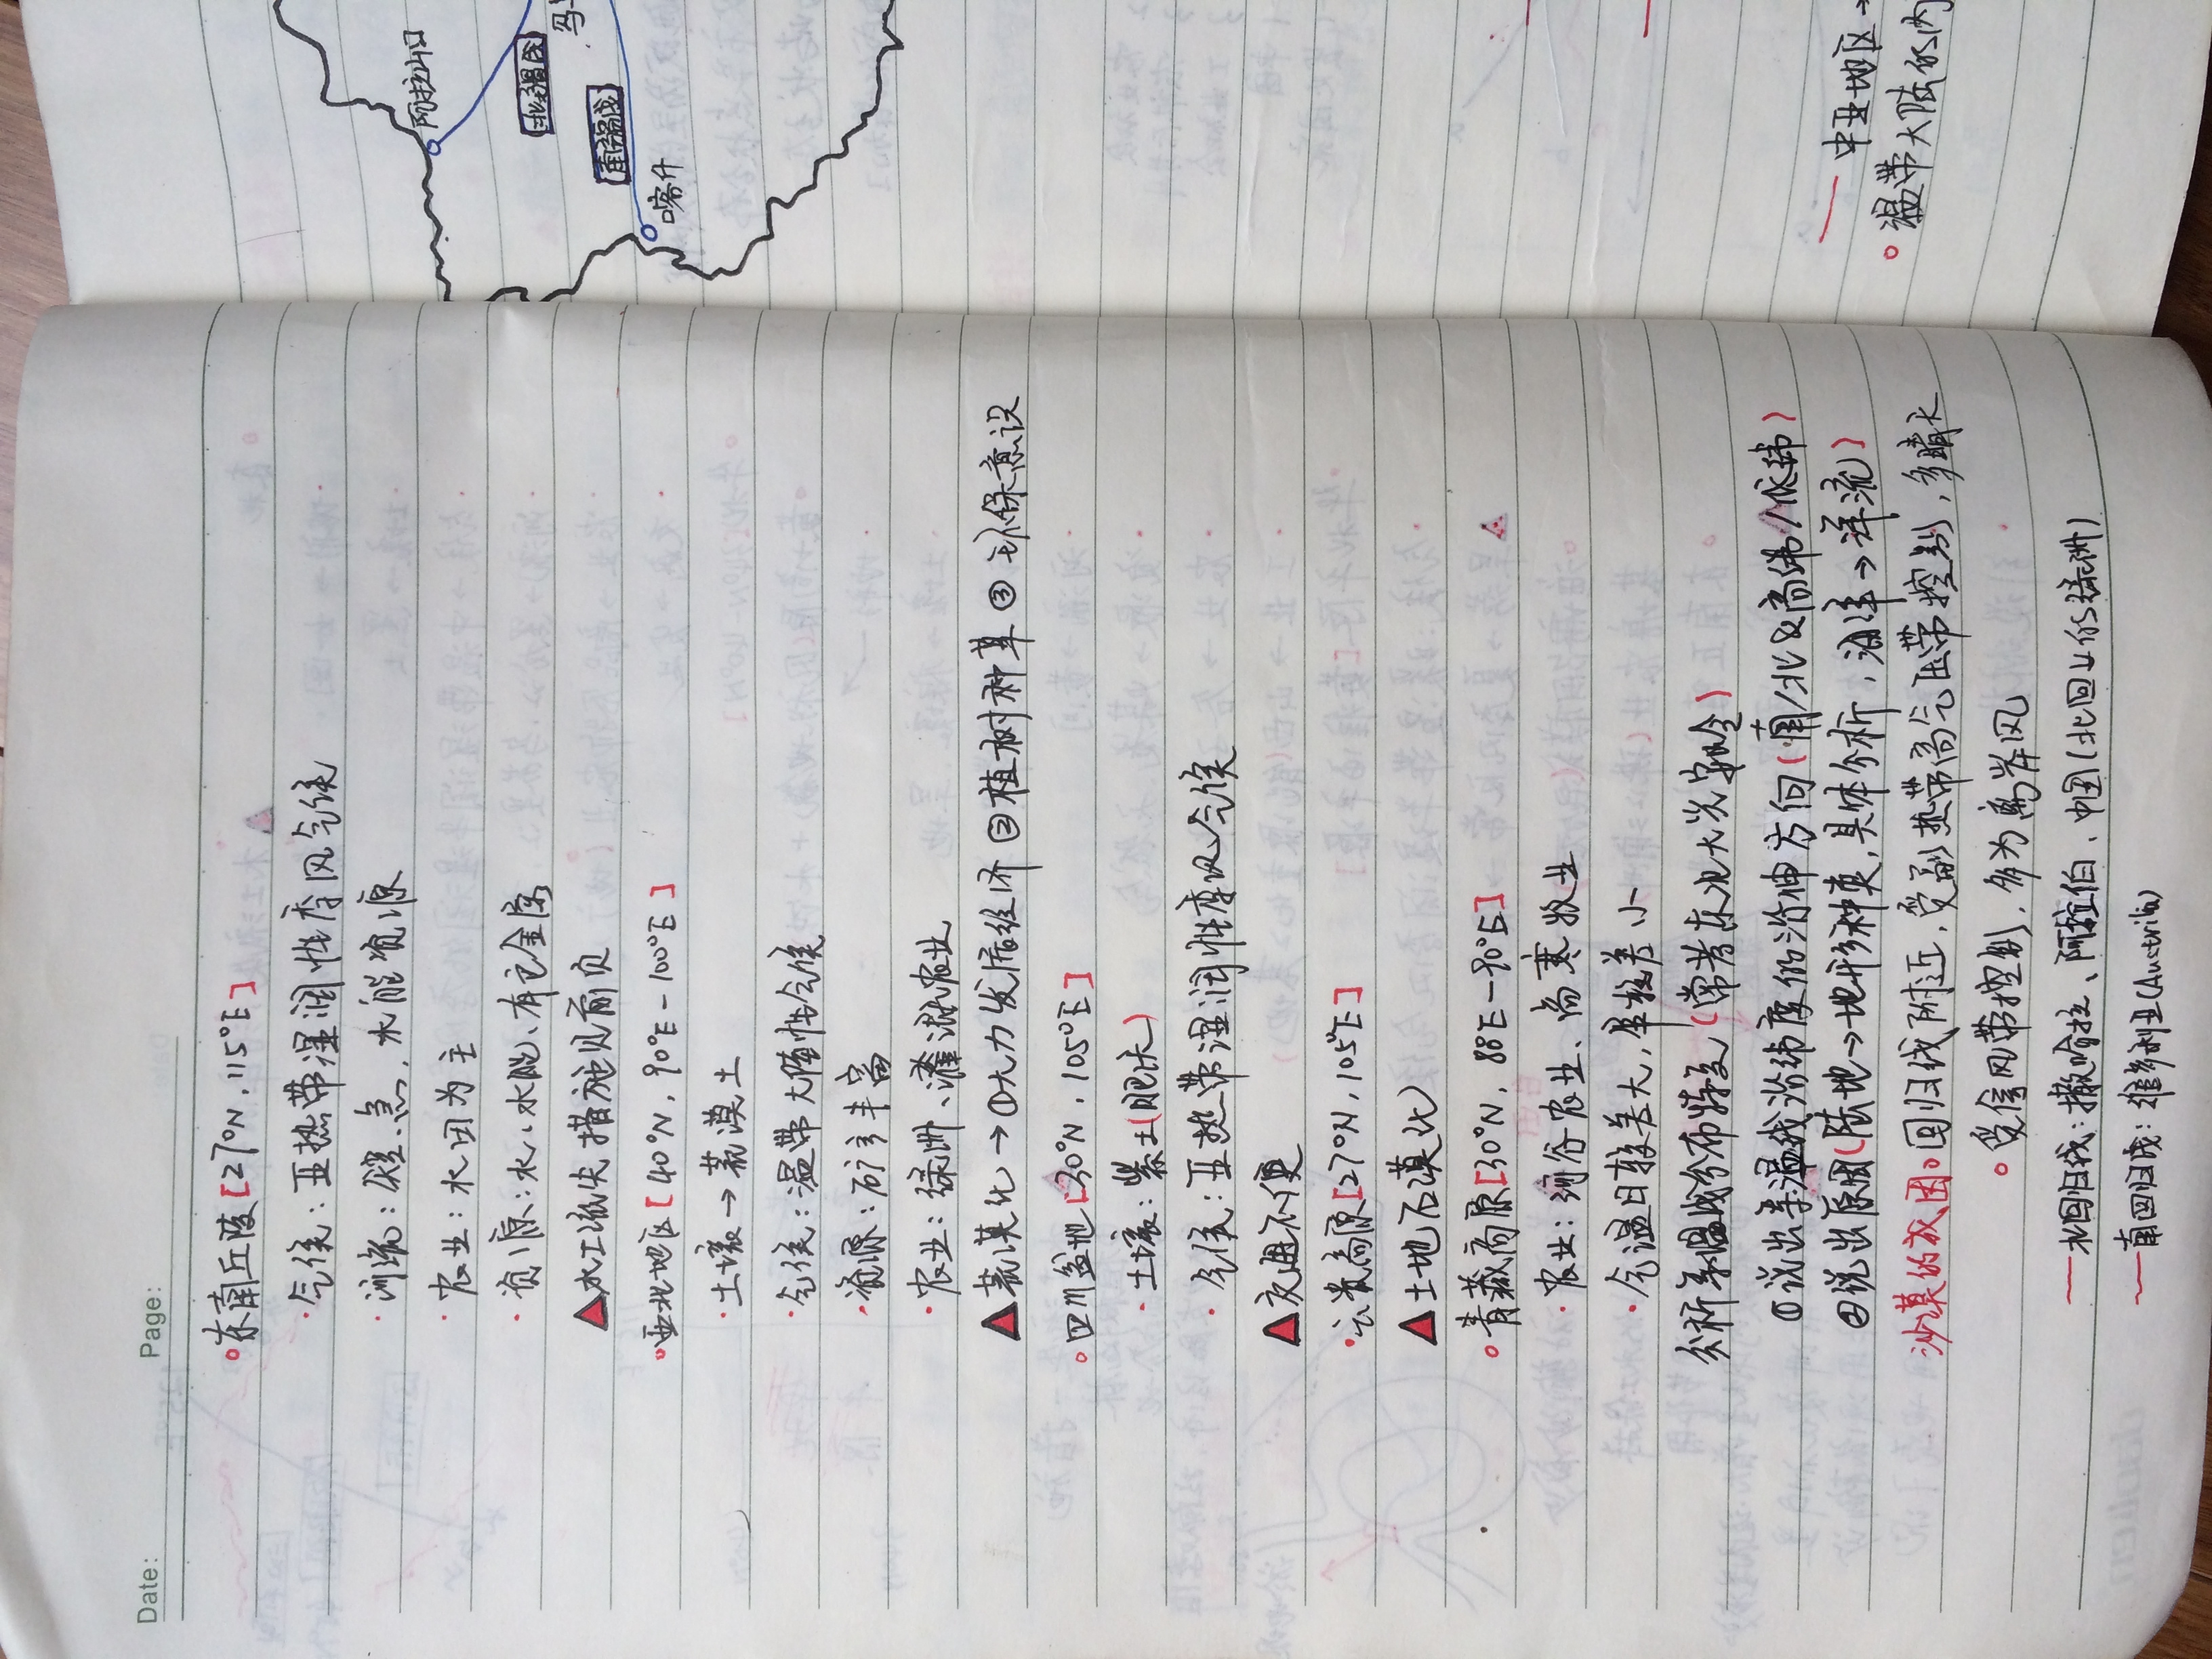 Date: Page:
东南丘陵[27°N,115°E]
·气候:亚热带湿润性季风气候
·河流:短、急,水能资源
·农业:水田为主
·资源:水、水能、有色金属
▲水土流失 措施见前页
西北地区[40°N,90°E-100°E]
·土壤→荒漠土
·气候:温带大陆性气候
·资源:矿产丰富
·农业:绿洲、灌溉农业
▲荒漠化→①大力发展经济②植树种草③环保意识
四川盆地[30°N,105°E]
·土壤:紫土(肥沃)
·气候:亚热带湿润性季风气候
▲交通不便
·云贵高原[27°N,105°E]
▲土地石漠化
青藏高原[30°N,88°E-90°E]
·农业:河谷农业、高寒牧业
·气温日较差大,年较差小
分析等温线分布特点(常考东北大兴安岭)
①说出等温线沿纬度的沿伸方向(南/北&高纬/低纬)
②说出原因(陆地→地形种类,具体分析,海洋→洋流)
沙漠的成因。回归线附近,受副热带高气压带控制,多晴天
。受信风带控制,多为离岸风
—北回归线:撒哈拉、阿拉伯、中国(北回上的绿洲)
—南回归线:维多利亚(Austrilia)
阿拉山口
北疆线
南疆线
喀什
中亚地区→
温带大陆的内